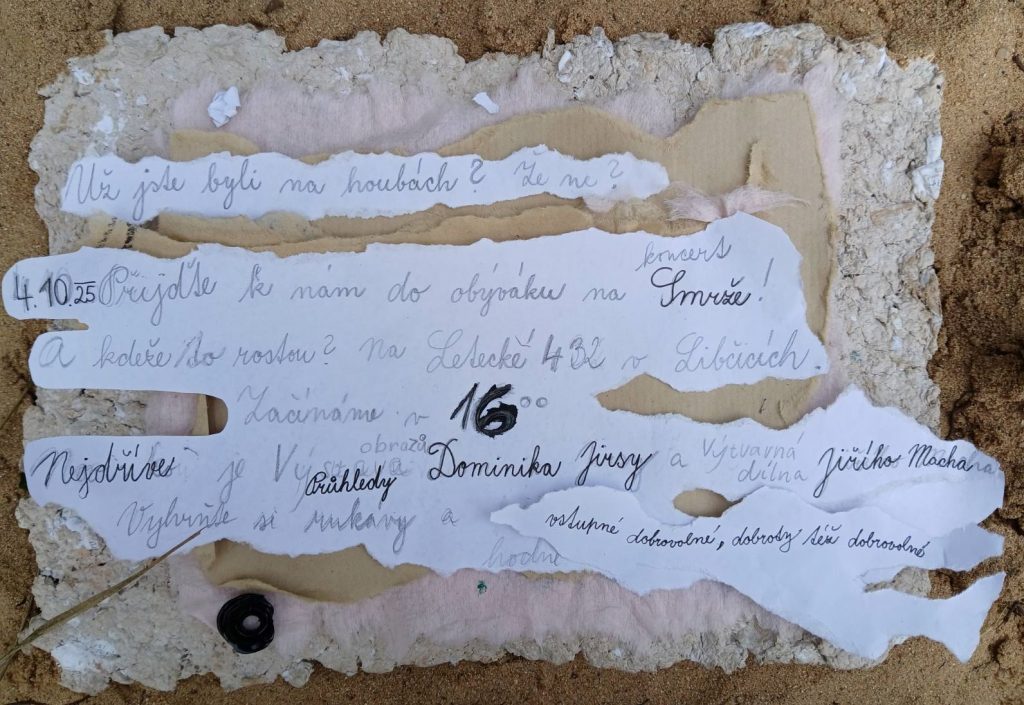 Už jste byli na houbách? Že ne?
koncert
4.10.25 Přijďte k nám do obýváku na Smrže!
A kdeže to rostou? Na Letecké 432 v Libčicích.
Začínáme v 16⁰⁰
obrazů
Nejdříve je Výstava Dominika Jirsy a Výtvarná dílna Jiřího Macha
Průhledy
Vyhrňte si rukávy a
vstupné dobrovolné, dobrody též dobrovolné
hodně